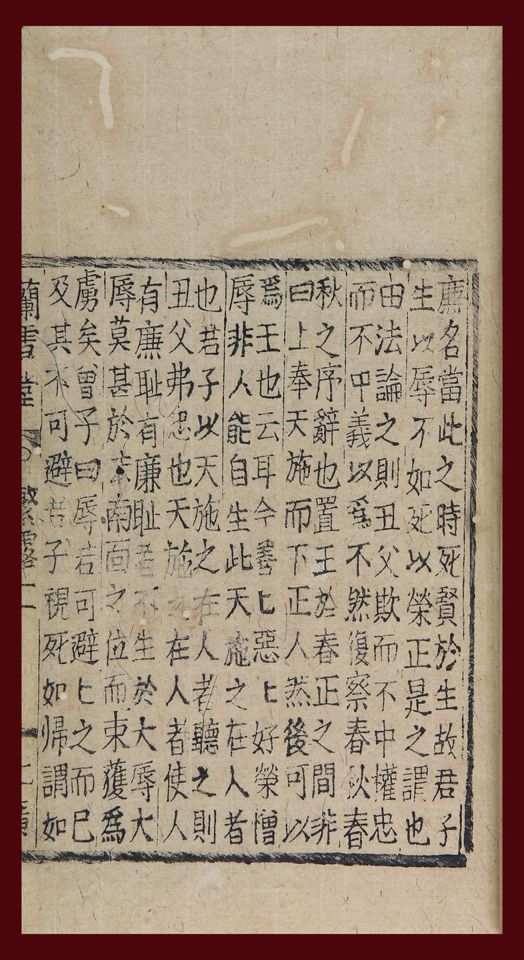 廉名當此之時死賢於生故君子
生以辱不如死以榮正是之謂也
由法論之則丑父欺而不中權忠
而不中義以爲不然復察春秋春
秋之序辭也置王於春正之間非
曰上奉天施而下正人然後可以
爲王也云耳今善〻惡〻好榮憎
辱非人能自生此天施之在人者
也君子以天施之在人者聽之則
丑父弗忠也天施之在人者使人
有廉耻有廉耻者不生於大辱大
辱莫甚於去南面之位而束獲爲
虜矣曾子曰辱若可避〻之而已
及其不可避君子視死如歸謂如
蘭雪堂 繁露二